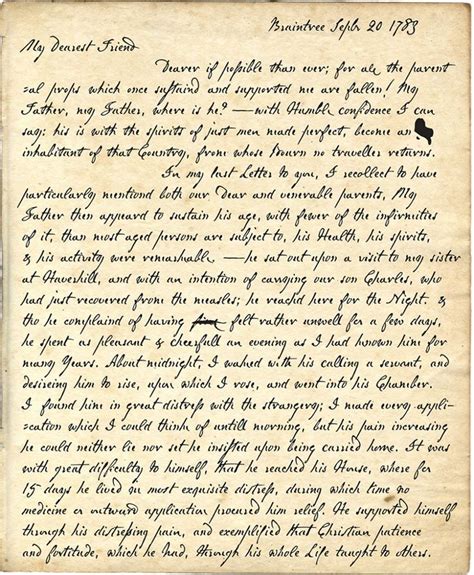 Braintree Sepbr 20 1783
My Dearest Friend
Dearer if possible than ever; for all the parent
=al props which once sustaind and supported me are fallen! My
Father, my Father, where is he? — with Humble confidence I can
say; his is with the spirits of just men made perfect, become an
inhabitant of that Country, from whose Bourn no traveller returns.
In my last Letter to you, I recollect to have
particularly mentiond both our Dear and venerable parents, My
Father then appeard to sustain his age, with fewer of the infirmities
of it, than most aged persons are subject to, his Health, his spirits,
& his activity were remarkable — he sat out upon a visit to my sister
at Haverhill, and with an intention of carrying our son Charles, who
had just recovered from the measles; he reachd here for the Night. &
tho he complaind of having felt rather unwell for a few days,
he spent as pleasant & cheerfull an evening as I had known him for
many Years. About midnight, I waked with his calling a servant, and
desireing him to rise, upon which I rose, and went into his Chamber.
I found him in great distress with the strangery; I made every appli-
=cation which I could think of untill morning, but his pain increasing
he could neither lie nor set he insisted upon being carried home. It was
with great difficulty to himself, that he reached his House, where for
15 days he lived in most exquisite distress, during which time no
medicine or outward application procured him relief. He supported himself
through his distressing pain, and exemplified that Christian patience
and fortitude, which he had, through his whole Life taught to others.